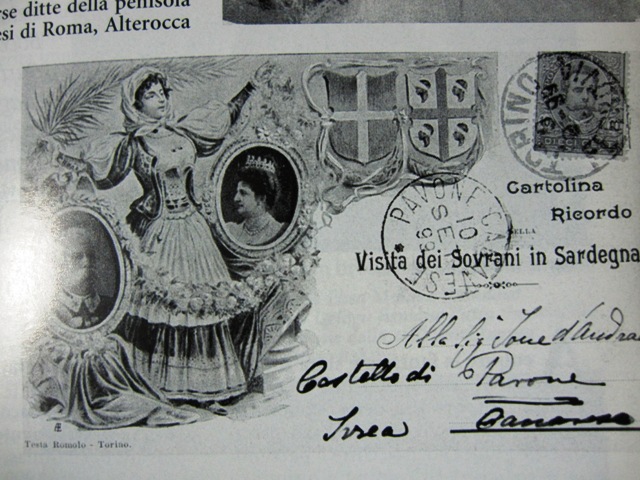 rse ditte della penisola
esi di Roma, Alterocca
TORINO
DIECI
Cartolina
Ricordo
DELLA
Visita dei Sovrani in Sardegna
PAVONE CANAVESE
10
SE
99
Alla Sig
Castello di Pavone
Ivrea Canavese
Testa Romolo - Torino.